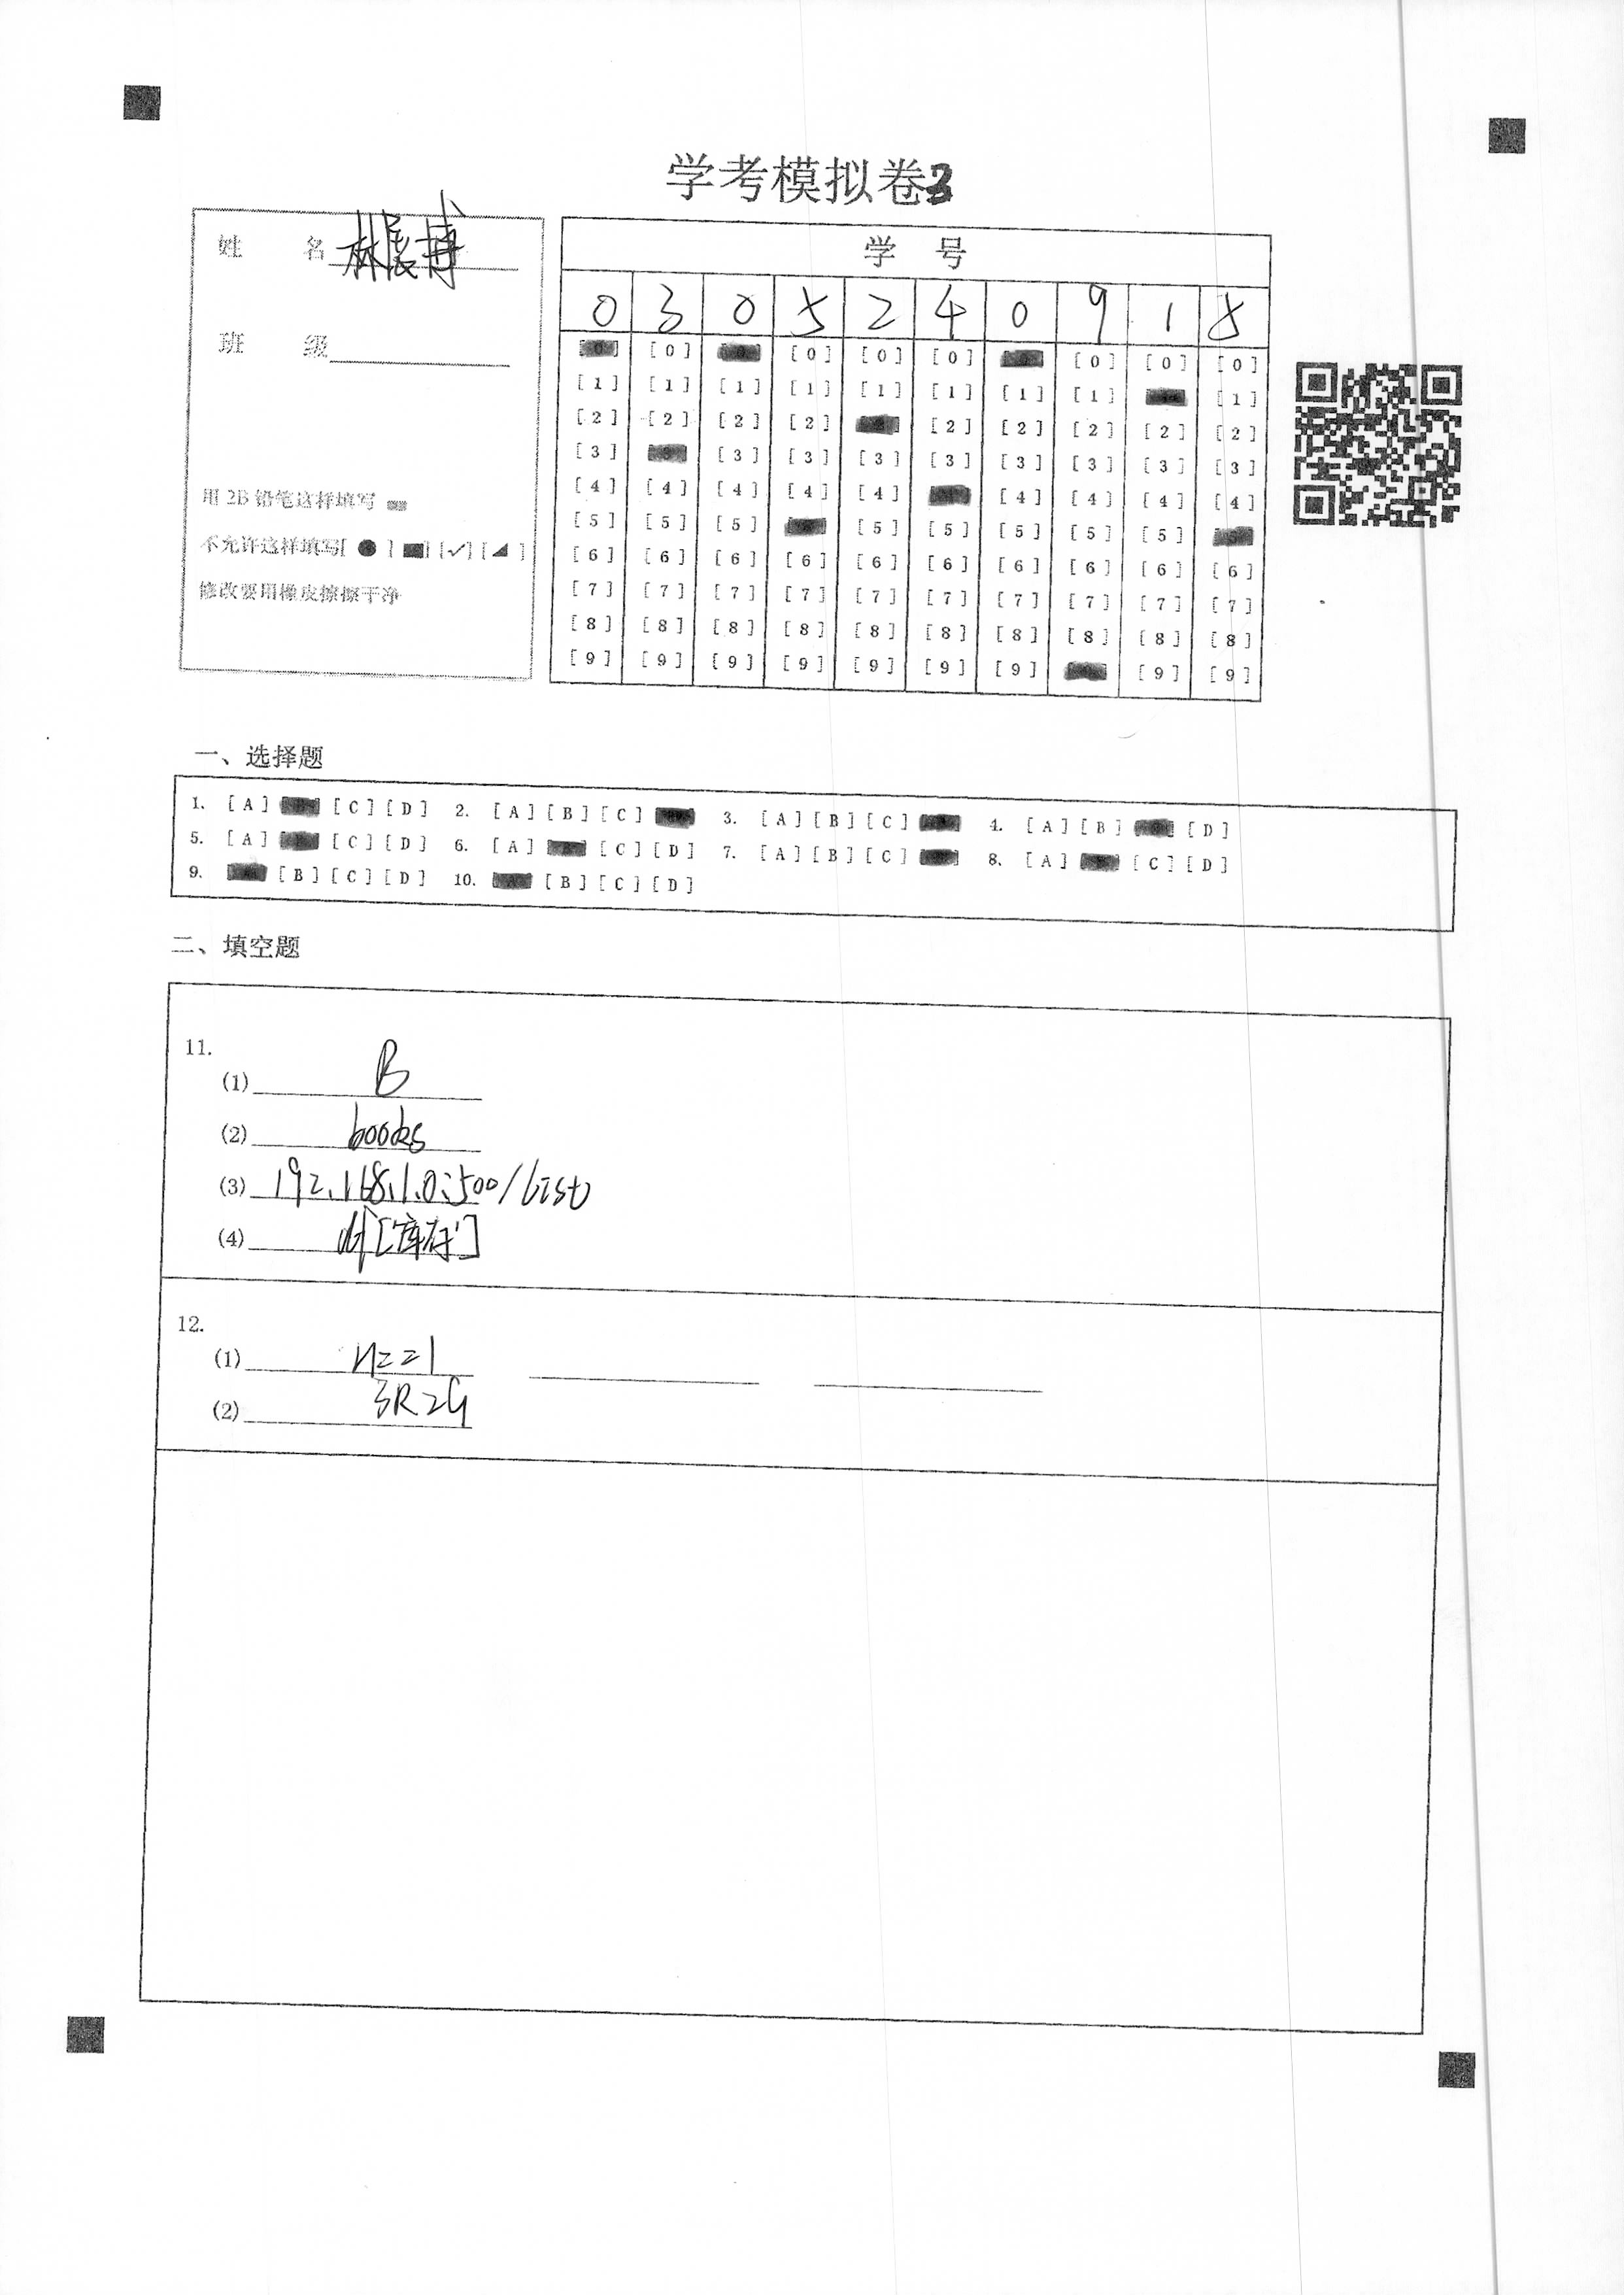 学考模拟卷3
姓 名 林展博
班 级
用 2B 铅笔这样填写
不允许这样填写[ ● ] [■] [✓] [◢ ]
修改要用橡皮擦擦干净
学 号
0 3 0 5 2 4 0 9 1 5
[0] [0] [0] [0] [0] [0] [0] [0] [0] [0]
[1] [1] [1] [1] [1] [1] [1] [1] [1]
[2] [2] [2] [2] [2] [2] [2] [2] [2]
[3] [3] [3] [3] [3] [3] [3] [3] [3]
[4] [4] [4] [4] [4] [4] [4] [4] [4]
[5] [5] [5] [5] [5] [5] [5] [5] [5]
[6] [6] [6] [6] [6] [6] [6] [6] [6] [6]
[7] [7] [7] [7] [7] [7] [7] [7] [7] [7]
[8] [8] [8] [8] [8] [8] [8] [8] [8] [8]
[9] [9] [9] [9] [9] [9] [9] [9] [9]
一、选择题
1. [A] [C] [D] 2. [A] [B] [C] 3. [A] [B] [C] 4. [A] [B] [D]
5. [A] [C] [D] 6. [A] [C] [D] 7. [A] [B] [C] 8. [A] [C] [D]
9. [B] [C] [D] 10. [B] [C] [D]
二、填空题
11.
(1) B
(2) books
(3) 192.168.1.0:500/list
(4) df['库存']
12.
(1) n==1
(2) 3R2G